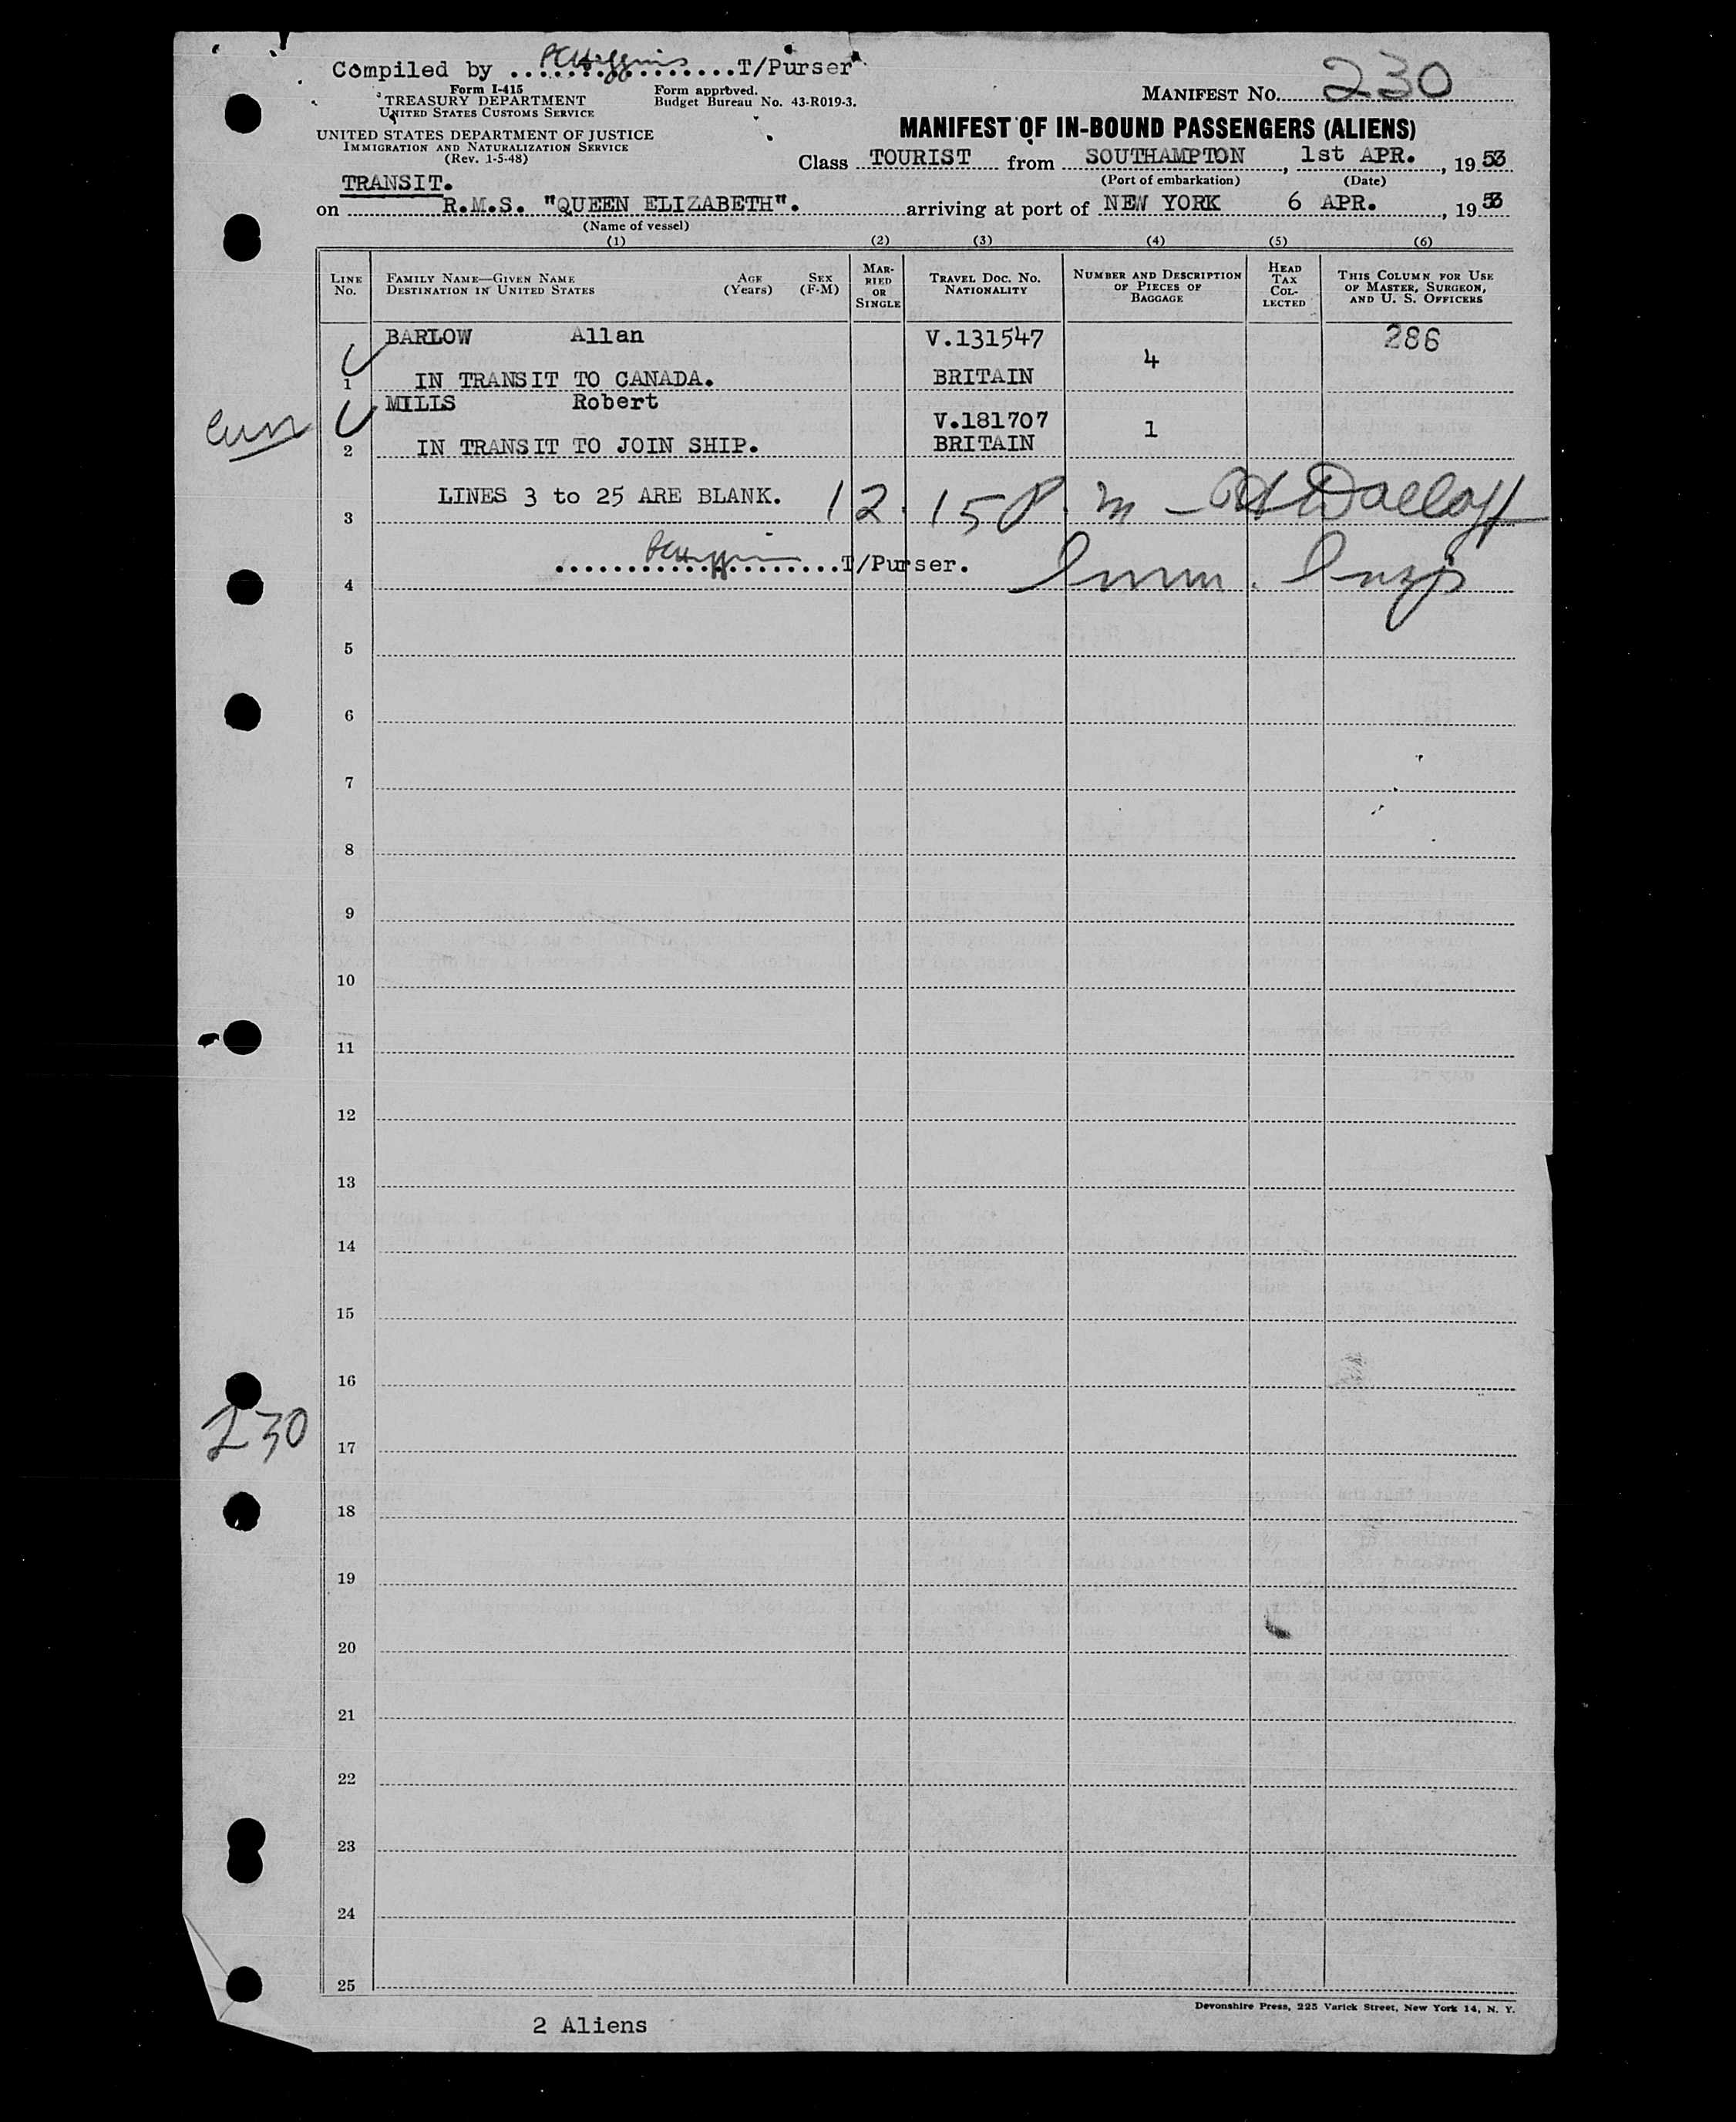 Compiled by ..................T/Purser
Form I-415
TREASURY DEPARTMENT
UNITED STATES CUSTOMS SERVICE
Form approved.
Budget Bureau No. 43-R019-3.
MANIFEST No. 230
UNITED STATES DEPARTMENT OF JUSTICE
IMMIGRATION AND NATURALIZATION SERVICE
(Rev. 1-5-48)
MANIFEST OF IN-BOUND PASSENGERS (ALIENS)
Class TOURIST from SOUTHAMPTON, 1st APR., 1953
(Port of embarkation) (Date)
TRANSIT.
on R.M.S. "QUEEN ELIZABETH". arriving at port of NEW YORK 6 APR., 1953
(Name of vessel)
(1) (2) (3) (4) (5) (6)
LINE No.
FAMILY NAME—GIVEN NAME
DESTINATION IN UNITED STATES
AGE (Years)
SEX (F-M)
MARRIED OR SINGLE
TRAVEL DOC. NO.
NATIONALITY
NUMBER AND DESCRIPTION OF PIECES OF BAGGAGE
HEAD TAX COLLECTED
THIS COLUMN FOR USE OF MASTER, SURGEON, AND U. S. OFFICERS
BARLOW Allan V.131547 4 286
1 IN TRANSIT TO CANADA. BRITAIN
MILLS Robert V.181707 1
2 IN TRANSIT TO JOIN SHIP. BRITAIN
LINES 3 to 25 ARE BLANK. 12.15 P.m –
3
....................T/Purser. Imm. Insp
4
5
6
7
8
9
10
11
12
13
14
15
16
230
17
18
19
20
21
22
23
24
25
Devonshire Press, 225 Varick Street, New York 14, N. Y.
2 Aliens